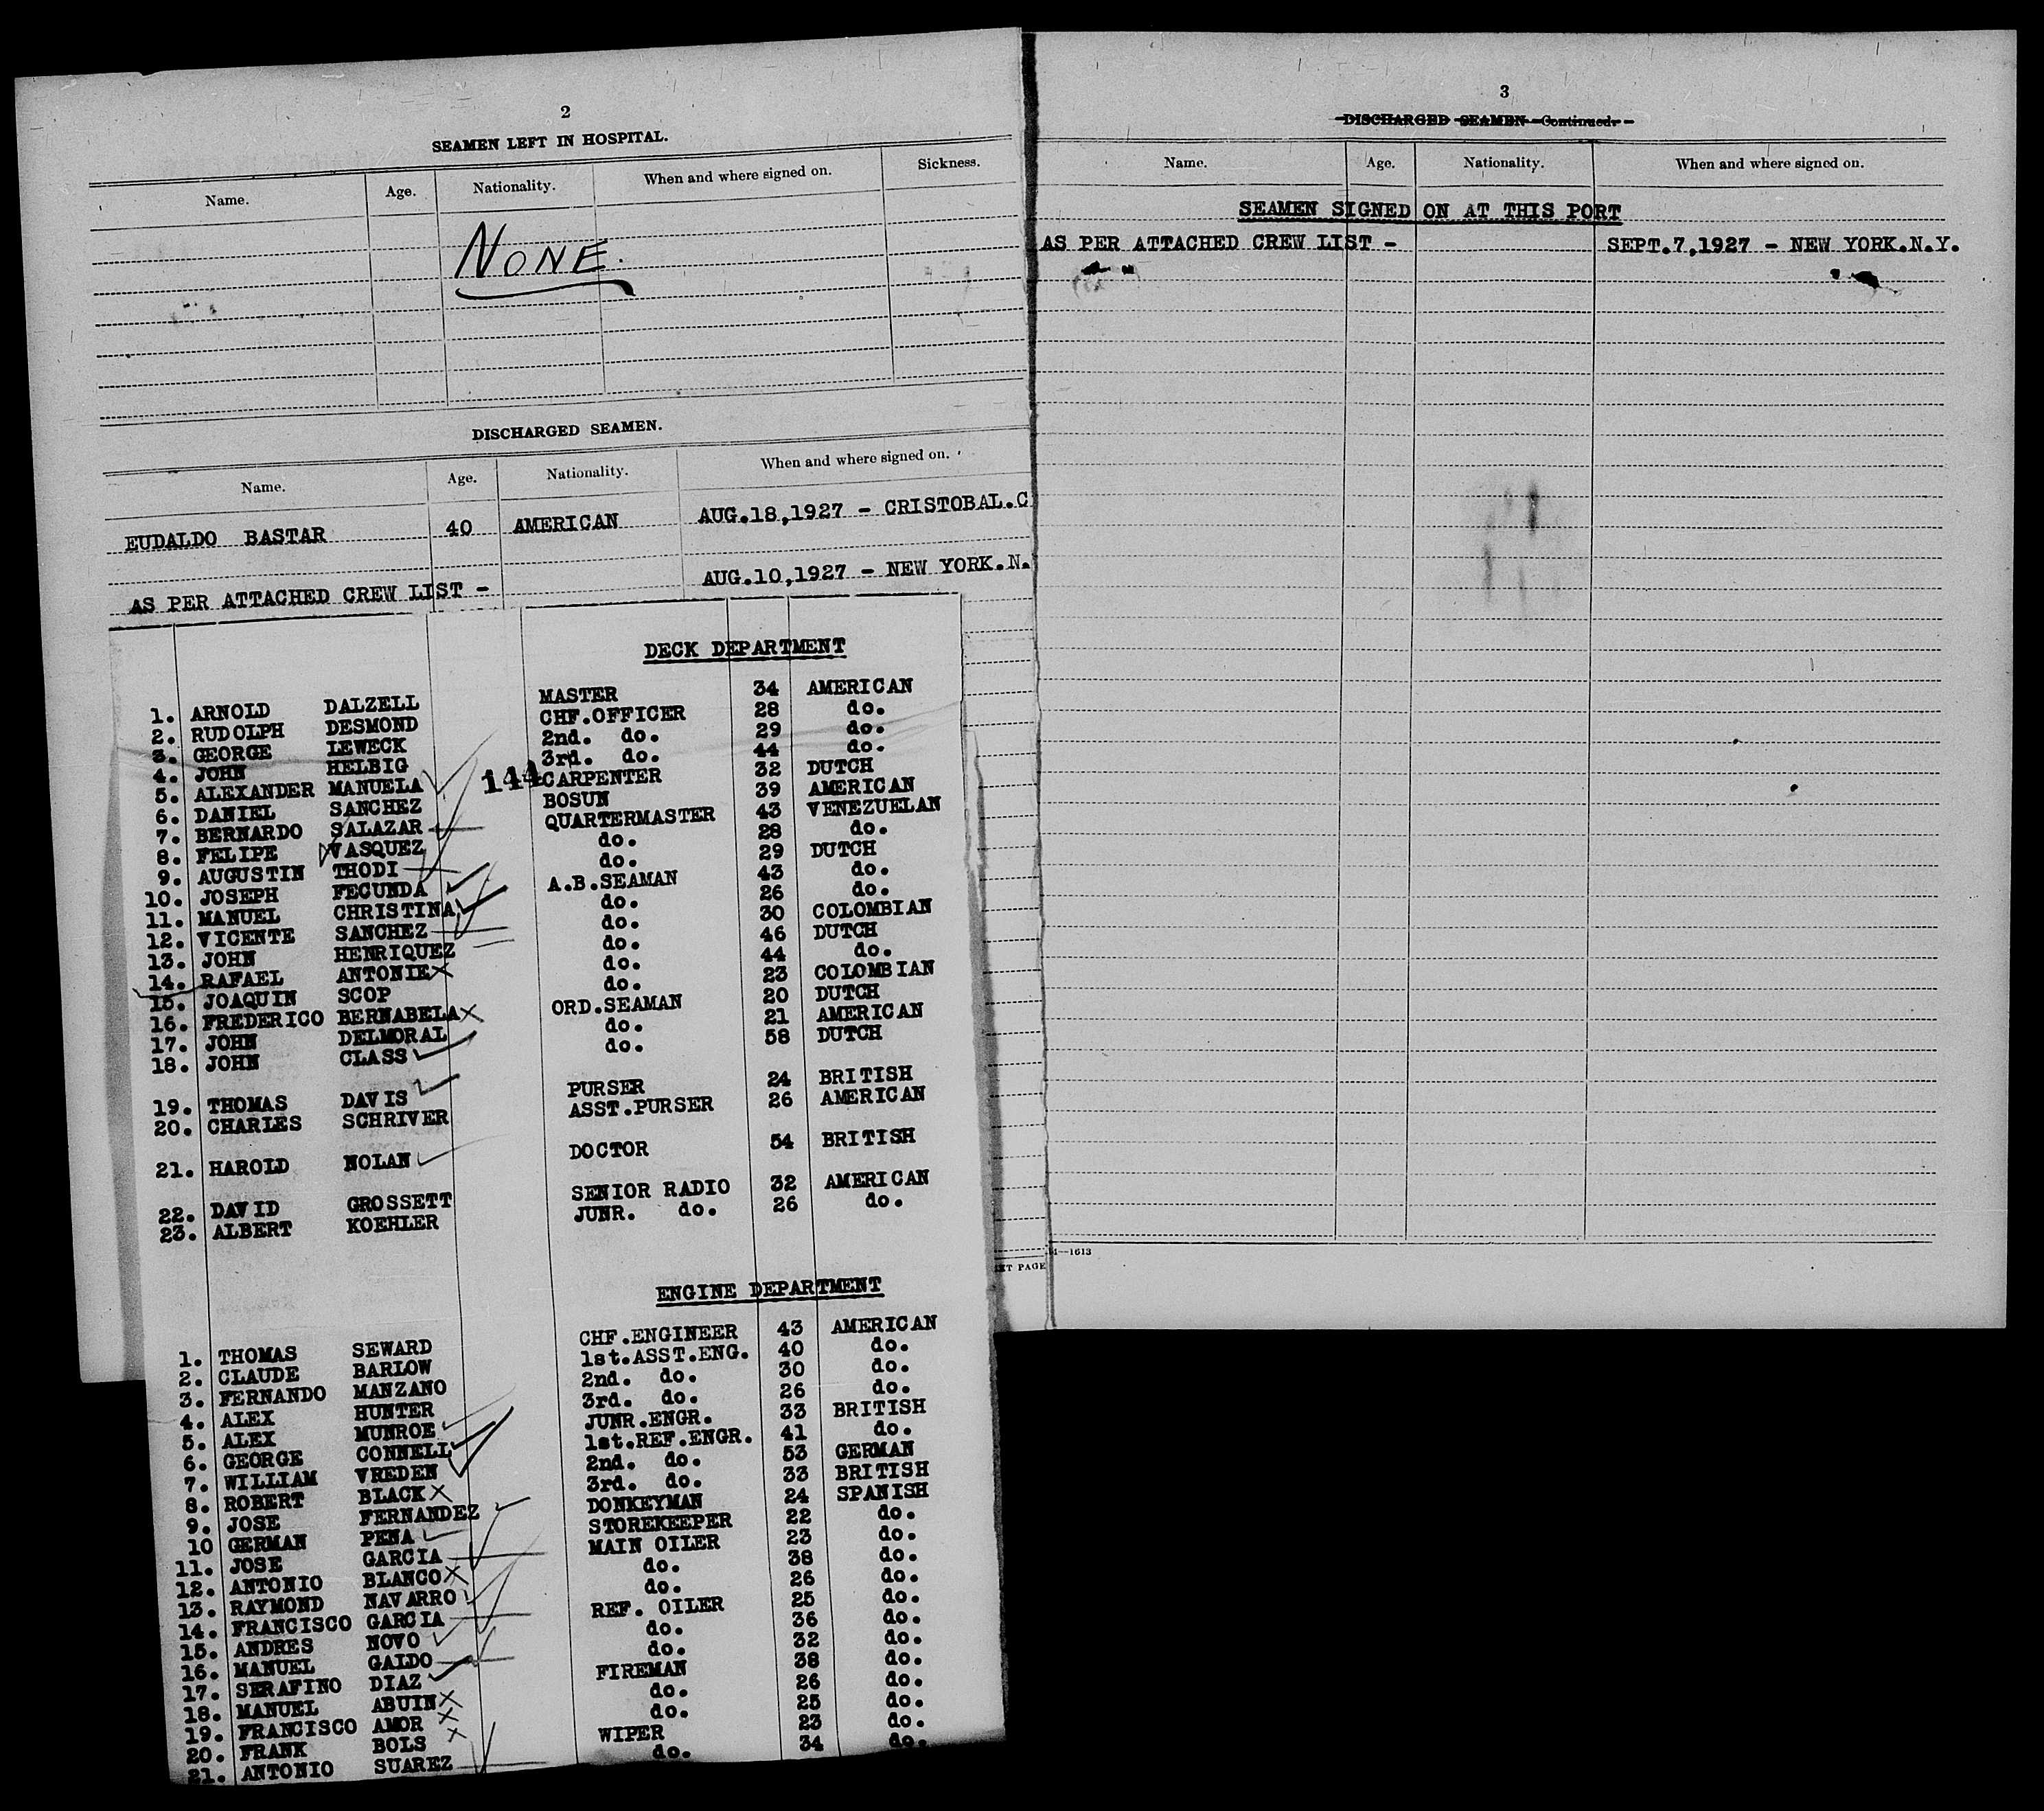 2
SEAMEN LEFT IN HOSPITAL.
Name. Age. Nationality. When and where signed on. Sickness.
NONE.
DISCHARGED SEAMEN.
Name. Age. Nationality. When and where signed on.
EUDALDO BASTAR 40 AMERICAN AUG.18,1927 - CRISTOBAL.C
AS PER ATTACHED CREW LIST - AUG.10,1927 - NEW YORK.N.
DECK DEPARTMENT
1. ARNOLD DALZELL MASTER 34 AMERICAN
2. RUDOLPH DESMOND CHF.OFFICER 28 do.
3. GEORGE LEWECK 2nd. do. 29 do.
4. JOHN HELBIG 3rd. do. 44 do.
5. ALEXANDER MANUELA 144 CARPENTER 32 DUTCH
6. DANIEL SANCHEZ BOSUN 39 AMERICAN
7. BERNARDO SALAZAR QUARTERMASTER 43 VENEZUELAN
8. FELIPE VASQUEZ do. 28 do.
9. AUGUSTIN THODI do. 29 DUTCH
10. JOSEPH FECUNDA A.B.SEAMAN 43 do.
11. MANUEL CHRISTINA do. 26 do.
12. VICENTE SANCHEZ do. 30 COLOMBIAN
13. JOHN HENRIQUEZ do. 46 DUTCH
14. RAFAEL ANTONIE do. 44 do.
15. JOAQUIN SCOP do. 23 COLOMBIAN
16. FREDERICO BERNABELA ORD.SEAMAN 20 DUTCH
17. JOHN DELMORAL do. 21 AMERICAN
18. JOHN CLASS do. 58 DUTCH
19. THOMAS DAVIS PURSER 24 BRITISH
20. CHARLES SCHRIVER ASST.PURSER 26 AMERICAN
21. HAROLD NOLAN DOCTOR 54 BRITISH
22. DAVID GROSSETT SENIOR RADIO 32 AMERICAN
23. ALBERT KOEHLER JUNR. do. 26 do.
ENGINE DEPARTMENT
1. THOMAS SEWARD CHF.ENGINEER 43 AMERICAN
2. CLAUDE BARLOW 1st.ASST.ENG. 40 do.
3. FERNANDO MANZANO 2nd. do. 30 do.
4. ALEX HUNTER 3rd. do. 26 do.
5. ALEX MUNROE JUNR.ENGR. 33 BRITISH
6. GEORGE CONNELL 1st.REF.ENGR. 41 do.
7. WILLIAM VREDEN 2nd. do. 53 GERMAN
8. ROBERT BLACK 3rd. do. 33 BRITISH
9. JOSE FERNANDEZ DONKEYMAN 24 SPANISH
10 GERMAN PENA STOREKEEPER 22 do.
11. JOSE GARCIA MAIN OILER 23 do.
12. ANTONIO BLANCO do. 38 do.
13. RAYMOND NAVARRO do. 26 do.
14. FRANCISCO GARCIA REF. OILER 25 do.
15. ANDRES NOVO do. 36 do.
16. MANUEL GALDO do. 32 do.
17. SERAFINO DIAZ FIREMAN 38 do.
18. MANUEL ABUIN do. 26 do.
19. FRANCISCO AMOR do. 25 do.
20. FRANK BOLS WIPER 23 do.
21. ANTONIO SUAREZ do. 34 do.
3
DISCHARGED SEAMEN—Continued.
Name. Age. Nationality. When and where signed on.
SEAMEN SIGNED ON AT THIS PORT
AS PER ATTACHED CREW LIST - SEPT.7,1927 - NEW YORK.N.Y.
—1613
PAGE